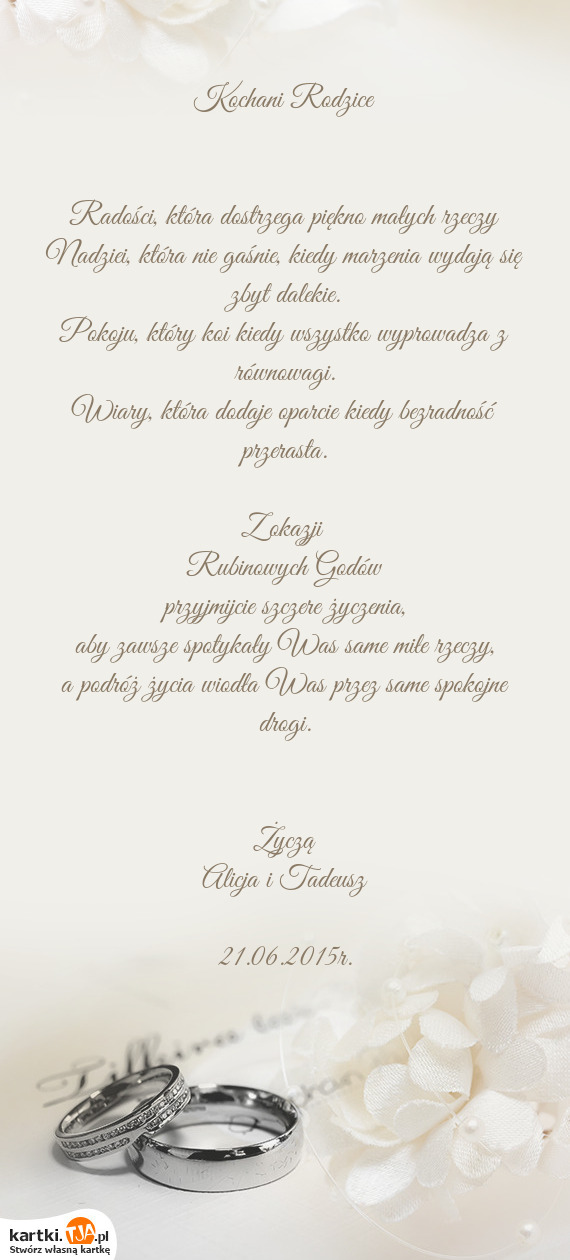 Kochani Rodzice
Radości, która dostrzega piękno małych rzeczy
Nadziei, która nie gaśnie, kiedy marzenia wydają się
zbyt dalekie.
Pokoju, który koi kiedy wszystko wyprowadza z
równowagi.
Wiary, która dodaje oparcie kiedy bezradność
przerasta.
Z okazji
Rubinowych Godów
przyjmijcie szczere życzenia,
aby zawsze spotykały Was same miłe rzeczy,
a podróż życia wiodła Was przez same spokojne
drogi.
Życzą
Alicja i Tadeusz
21.06.2015r.
kartki.TJA.pl
Stwórz własną kartkę